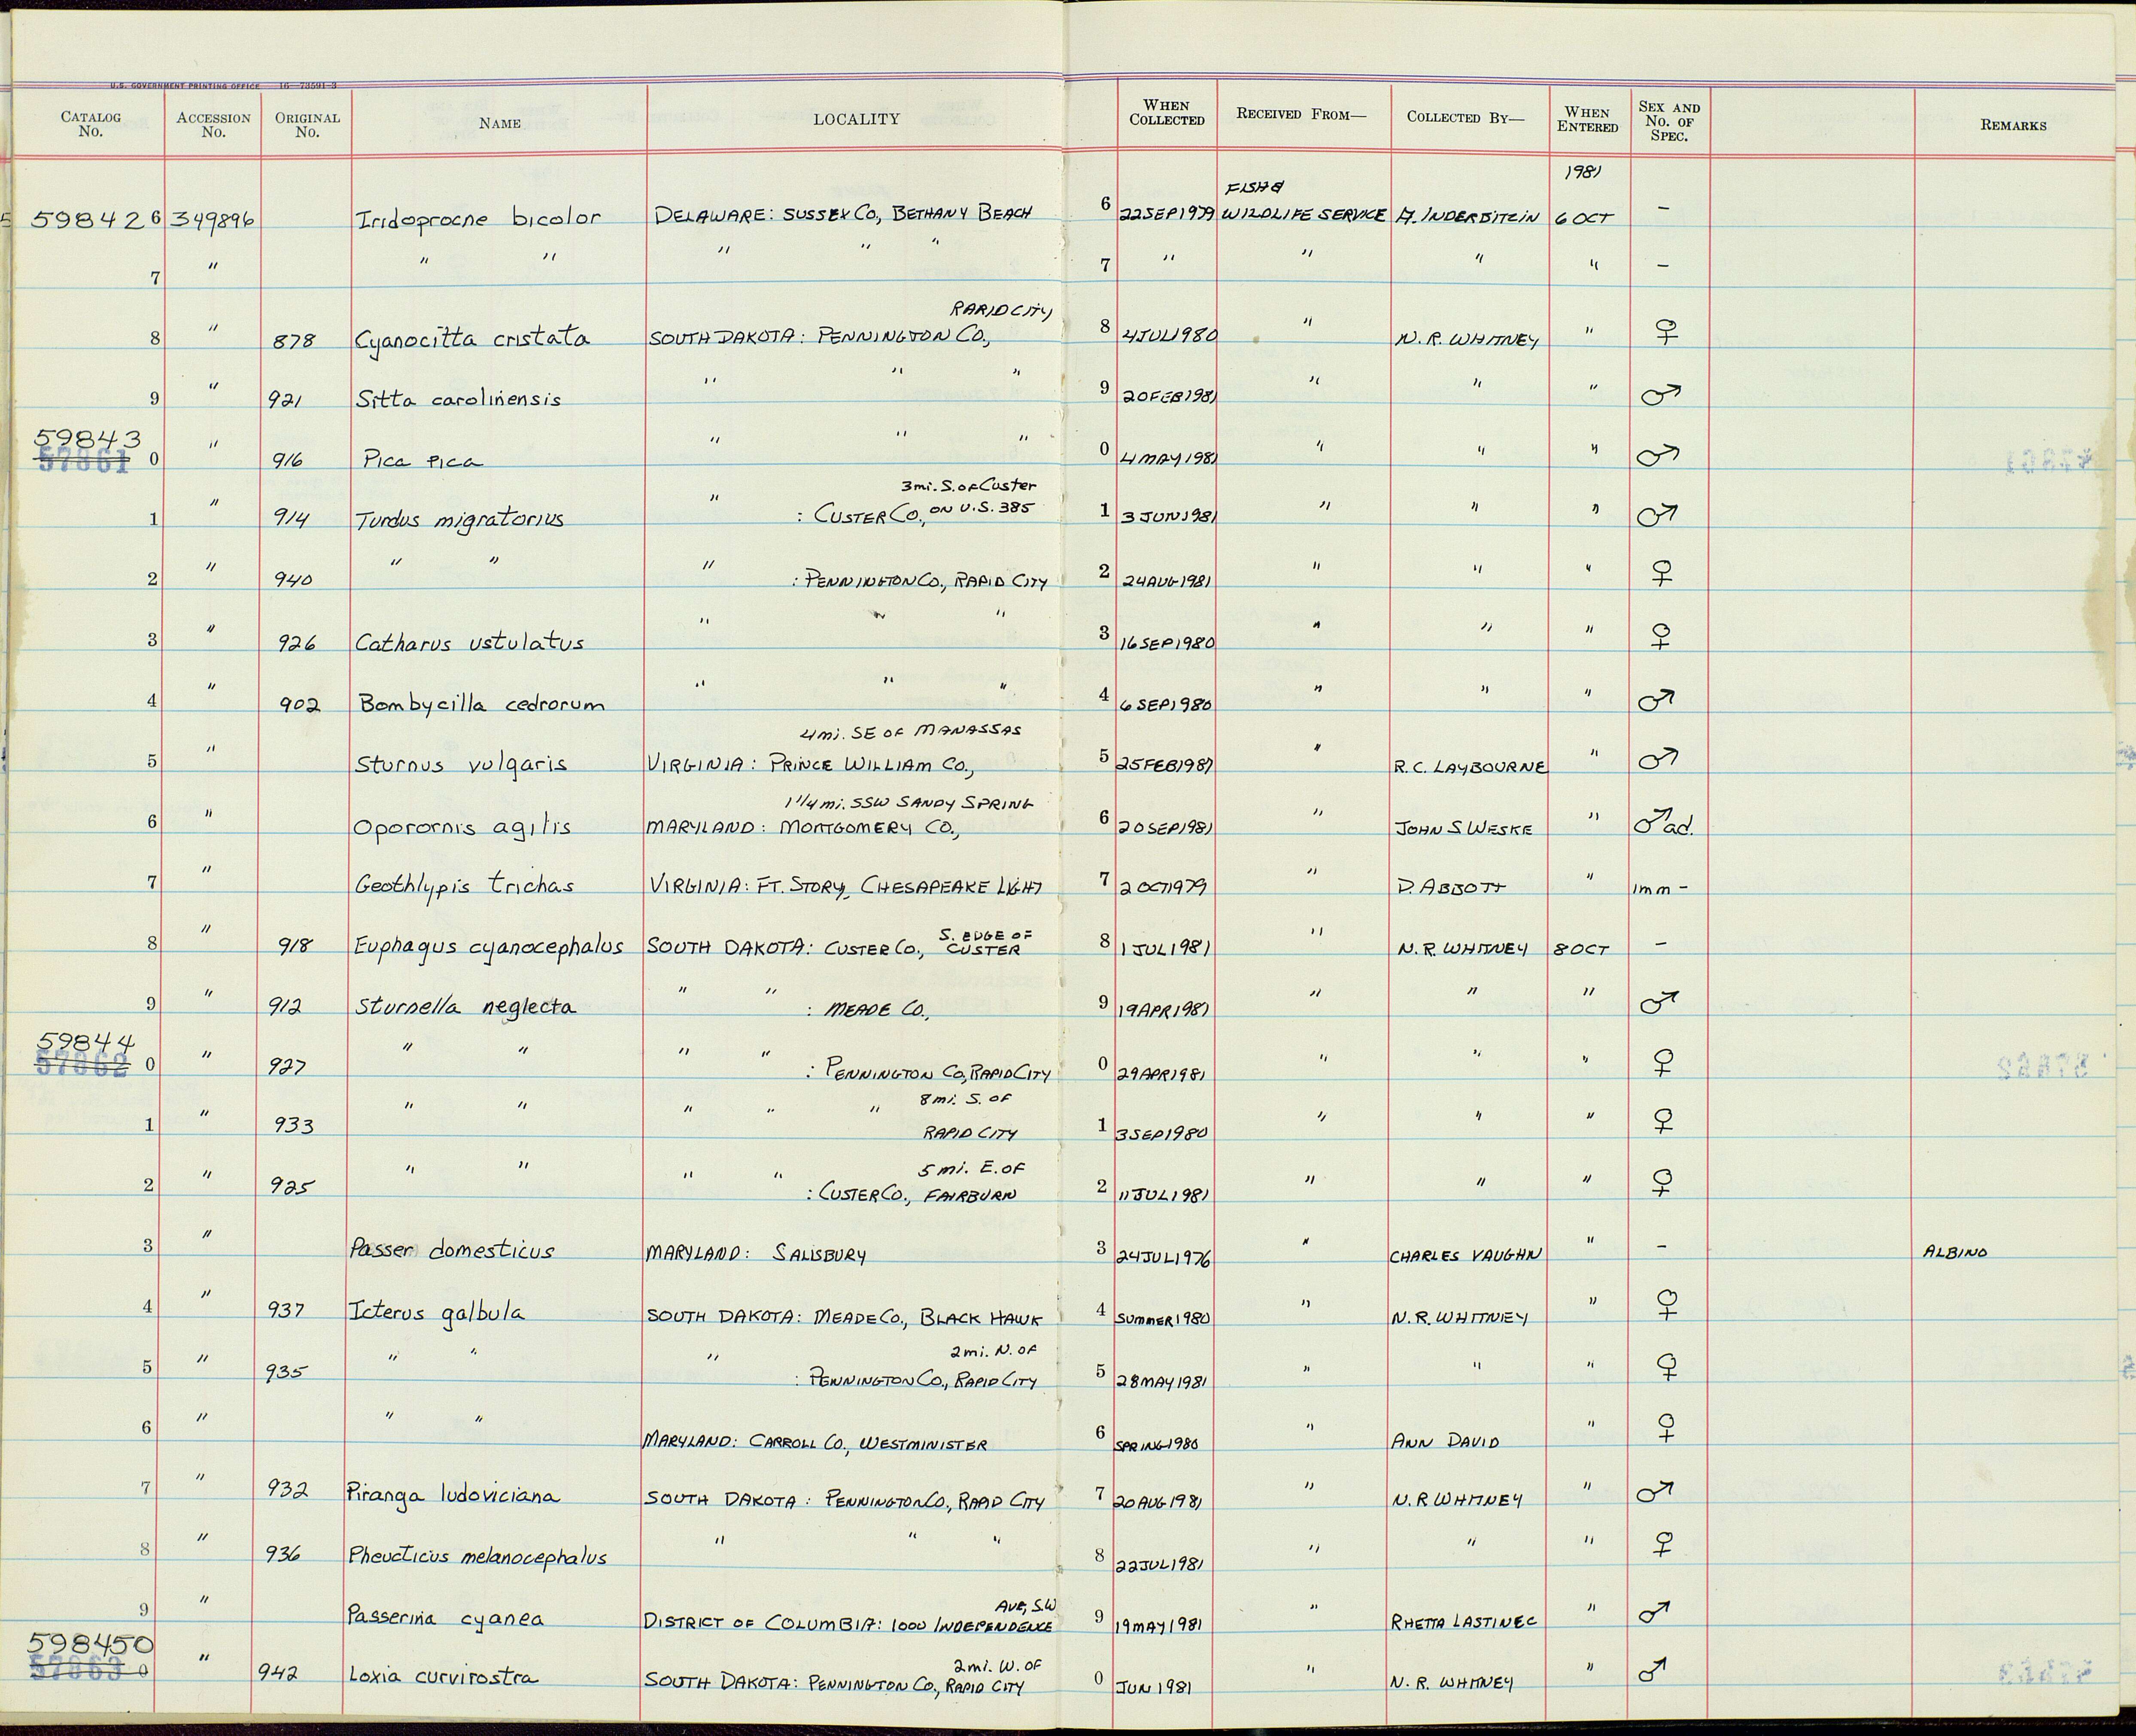 U.S. GOVERNMENT PRINTING OFFICE 16—73591-3
CATALOG No. ACCESSION No. ORIGINAL No. NAME LOCALITY WHEN COLLECTED RECEIVED FROM— COLLECTED BY— WHEN ENTERED SEX AND No. OF SPEC. REMARKS
1981
FISH &
598426 349896 Iridoprocne bicolor DELAWARE: SUSSEX CO., BETHANY BEACH 6 22SEP1979 WILDLIFE SERVICE A. INDERBITZIN 6 OCT –
7 " " " " " " 7 " " " " –
RAPID CITY
8 " 878 Cyanocitta cristata SOUTH DAKOTA: PENNINGTON CO., 8 4JUL1980 " N. R. WHITNEY " ♀
9 " 921 Sitta carolinensis " " " 9 20FEB1981 " " " ♂
59843
57861 0 " 916 Pica pica " " " 0 4MAY1981 " " " ♂
3mi. S. of Custer
1 " 914 Turdus migratorius " : CUSTER CO., ON U.S. 385 1 3JUN1981 " " " ♂
2 " 940 " " " : PENNINGTON CO., RAPID CITY 2 24AUG1981 " " " ♀
3 " 926 Catharus ustulatus " " " 3 16SEP1980 " " " ♀
4 " 902 Bombycilla cedrorum " " " 4 6SEP1980 " " " ♂
4mi. SE OF MANASSAS
5 " Sturnus vulgaris VIRGINIA: PRINCE WILLIAM CO., 5 25FEB1981 " R. C. LAYBOURNE " ♂
1 1/4 mi. SSW SANDY SPRING
6 " Oporornis agilis MARYLAND: MONTGOMERY CO., 6 20SEP1981 " JOHN S WESKE " ♂ad.
7 " Geothlypis trichas VIRGINIA: FT. STORY, CHESAPEAKE LIGHT 7 2OCT1979 " D. ABBOTT " imm –
S. EDGE OF
8 " 918 Euphagus cyanocephalus SOUTH DAKOTA: CUSTER CO., CUSTER 8 1JUL1981 " N. R. WHITNEY 8 OCT –
9 " 912 Sturnella neglecta " " : MEADE CO., 9 19APR1981 " " " ♂
59844
57862 0 " 927 " " " " : PENNINGTON CO, RAPID CITY 0 29APR1981 " " " ♀
8mi. S. OF
1 " 933 " " " " " RAPID CITY 1 3SEP1980 " " " ♀
5 mi. E. OF
2 " 925 " " " " : CUSTER CO., FAIRBURN 2 11JUL1981 " " " ♀
3 " Passer domesticus MARYLAND: SALISBURY 3 24JUL1976 " CHARLES VAUGHN " – ALBINO
4 " 937 Icterus galbula SOUTH DAKOTA: MEADE CO., BLACK HAWK 4 SUMMER1980 " N. R. WHITNEY " ♀
2mi. N. OF
5 " 935 " " " : PENNINGTON CO., RAPID CITY 5 28MAY1981 " " " ♀
6 " " " MARYLAND: CARROLL CO., WESTMINISTER 6 SPRING1980 " ANN DAVID " ♀
7 " 932 Piranga ludoviciana SOUTH DAKOTA: PENNINGTON CO., RAPID CITY 7 20AUG1981 " N. R WHITNEY " ♂
8 " 936 Pheucticus melanocephalus " " " 8 22JUL1981 " " " ♀
AVE, S.W
9 " Passerina cyanea DISTRICT OF COLUMBIA: 1000 INDEPENDENCE 9 19MAY1981 " RHETTA LASTINEC " ♂
598450 2mi. W. OF
57863 0 " 942 Loxia curvirostra SOUTH DAKOTA: PENNINGTON CO., RAPID CITY 0 JUN 1981 " N. R. WHITNEY " ♂